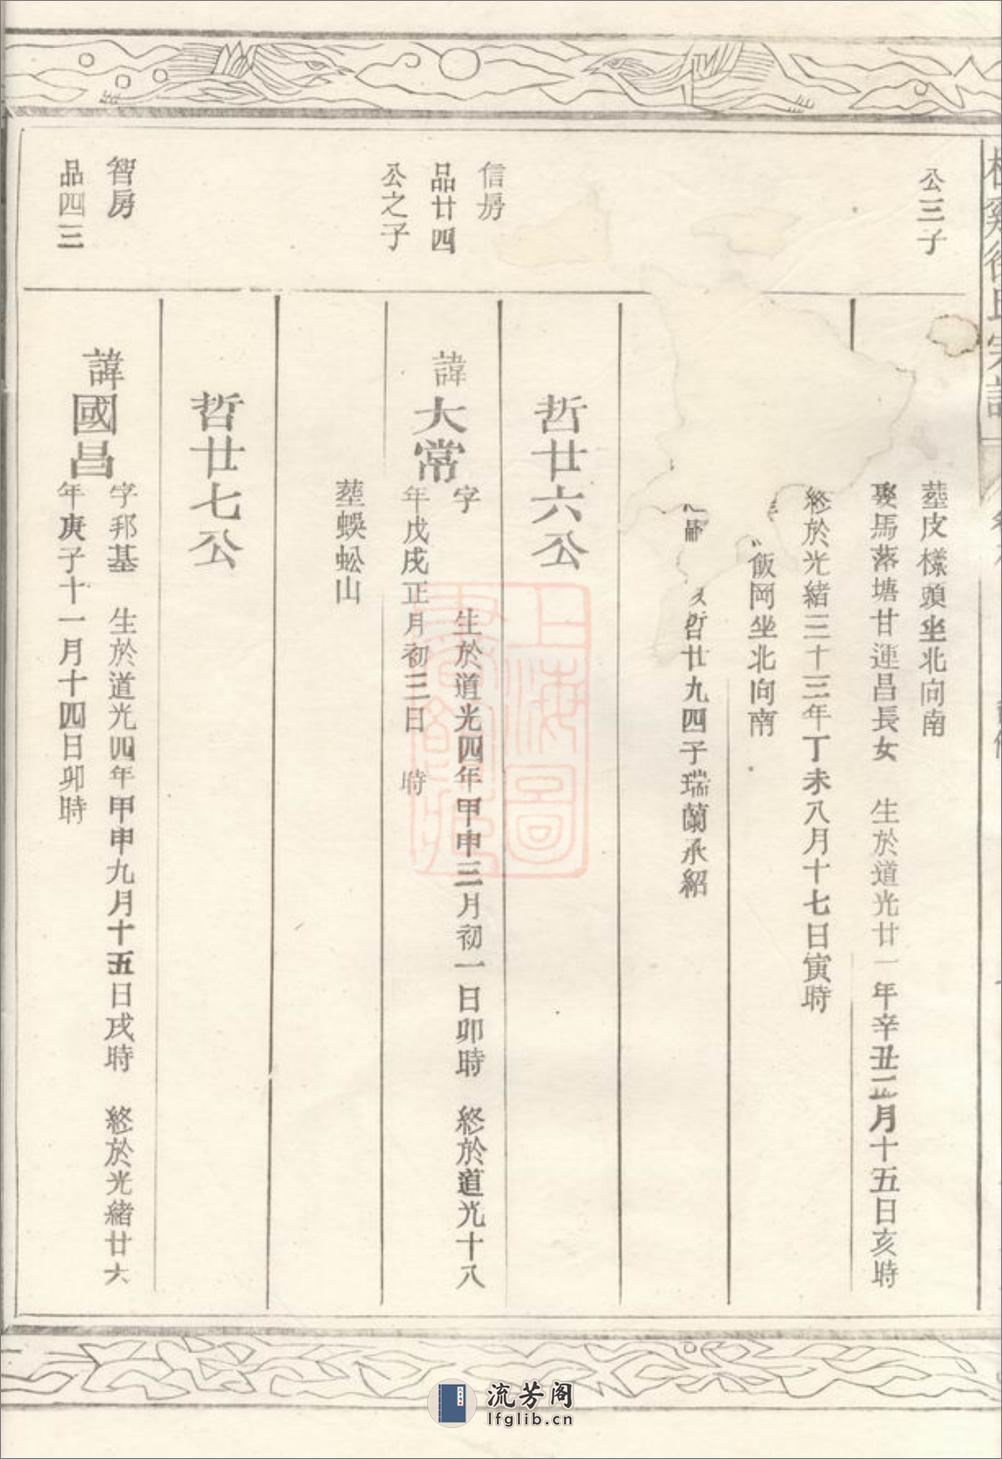 公三子
塟皮樣頭坐北向南
娶馬落塘甘運昌長女 生於道光廿一年辛丑二月十五日亥時
終於光緒三十三年丁未八月十七日寅時
飯岡坐北向南
哲廿九四子瑞蘭承紹
哲廿六公
信房
品廿四
公之子
諱大常
字 生於道光四年甲申三月初一日卯時 終於道光十八
年戊戌正月初三日 時
塟蜈蚣山
哲廿七公
智房
品四三
諱國昌
字邦基 生於道光四年甲申九月十五日戌時 終於光緒廿六
年庚子十一月十四日卯時
上海圖
流芳阁
lfglib.cn